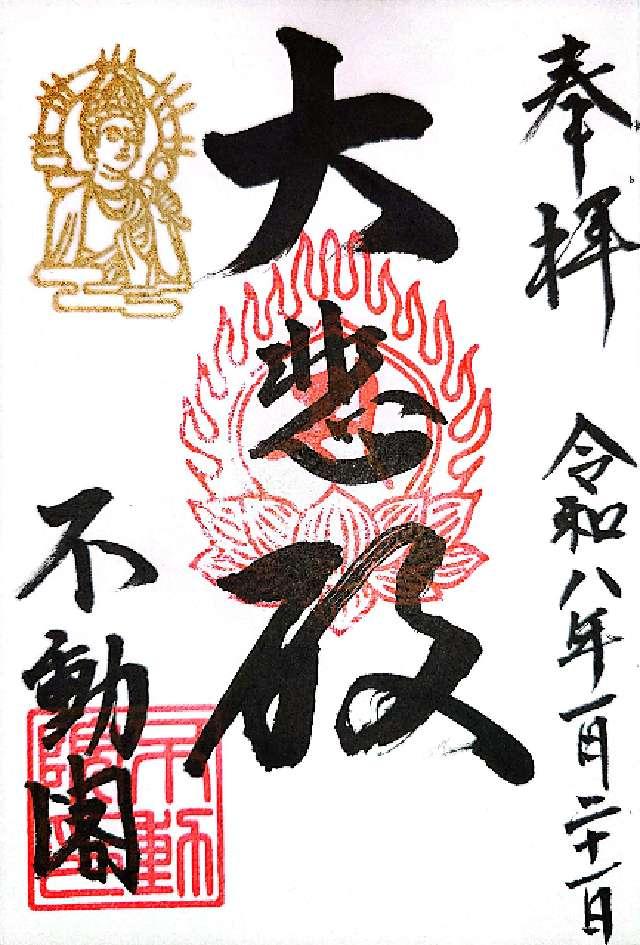 奉拝 令和八年一月二十一日
大悲殿
不動閣